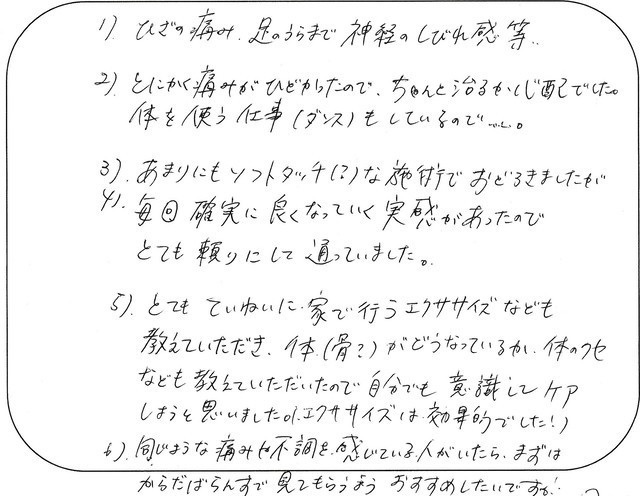 1). ひざの痛み. 足のうらまで 神経のしびれ感 等..
2) とにかく痛みがひどかったので、ちゃんと治るか心配でした。
体を使う仕事(ダンス)もしているので……。
3). あまりにもソフトタッチ(?)な施術でおどろきましたが
4). 毎回 確実に良くなっていく実感があったので
とても頼りにして通っていました。
5). とても ていねいに家で行うエクササイズなども
教えていただき、体(骨?)がどうなっているか、体のクセ
なども教えていただいたので自分でも意識してケア
しようと思いました。(エクササイズは効果的でした!)
6). 同じような痛みや不調を感じている人がいたら、まずは
からだばらんすで見てもらうよう おすすめしたいですが